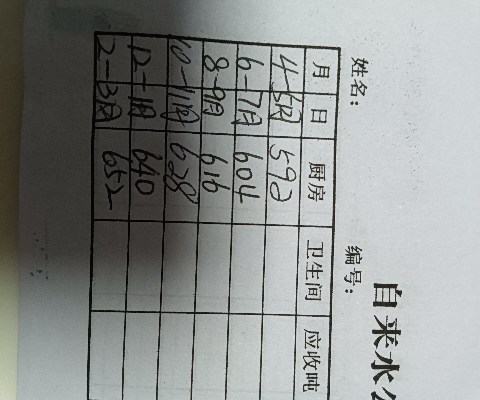 自来水公
姓名： 编号：
月 日 厨房 卫生间 应收吨
4-5月 592
6-7月 604
8-9月 616
10-11月 628
12-1月 640
2-3月 652